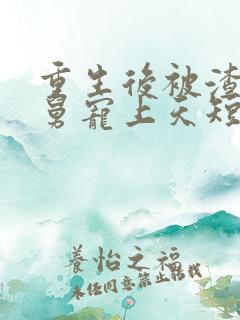 重生後被渣
舅寵上天短
養怡之福
未经同意禁止转载